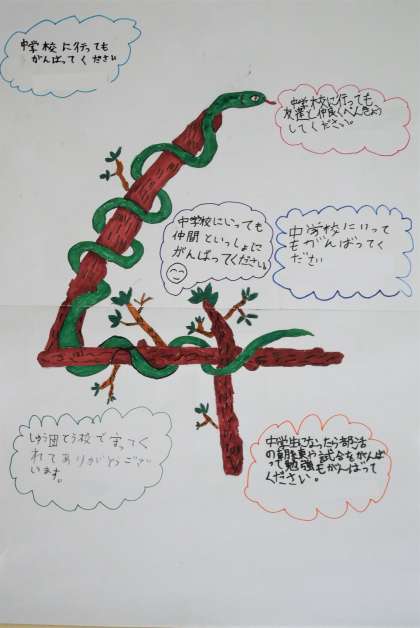 中学校に行っても
がんばってください
中学校に行っても
友達と仲良くべんきょう
してください。
中学校にいっても
仲間といっしょに
がんばってください。
中学校にいって
もがんばってく
ださい
しゅう団とう校で守ってく
れてありがとうござ
います。
中学生になったら部活
の朝練や試合をがんば
って勉強もがんばって
ください。